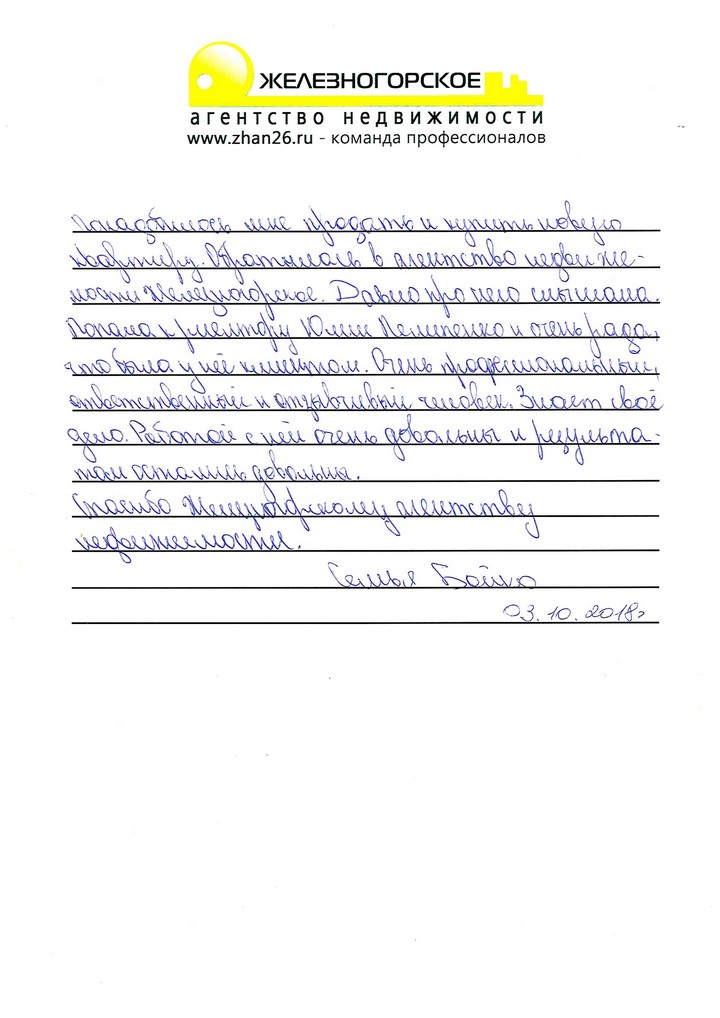 ЖЕЛЕЗНОГОРСКОЕ
агентство недвижимости
www.zhan26.ru - команда профессионалов
Понадобилось мне продать и купить новую
квартиру. Обратилась в агентство недвиже-
мости Железногорское. Давно про него слышала.
Попала к риелтору Юлии Пелипенко и очень рада,
что была у неё клиентом. Очень профессиональный,
ответственный и отзывчивый человек. Знает своё
дело. Работой с ней очень довольны и результа-
том остались довольны.
Спасибо Железногорскому агентству
недвижемости.
Семья Бойко
03.10.2018г